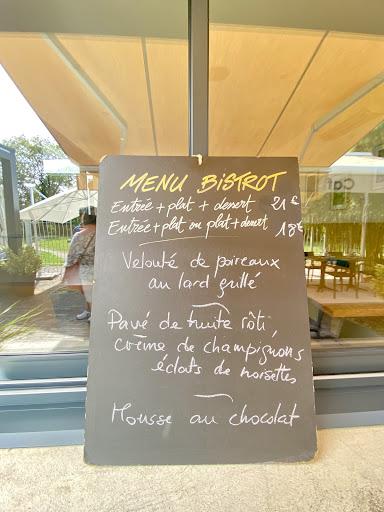 MENU BISTROT
Entrée + plat + dessert 21€
Entrée + plat ou plat + dessert 18€
Velouté de poireaux
au lard grillé
Pavé de truite rôti,
crème de champignons,
éclats de noisettes
Mousse au chocolat